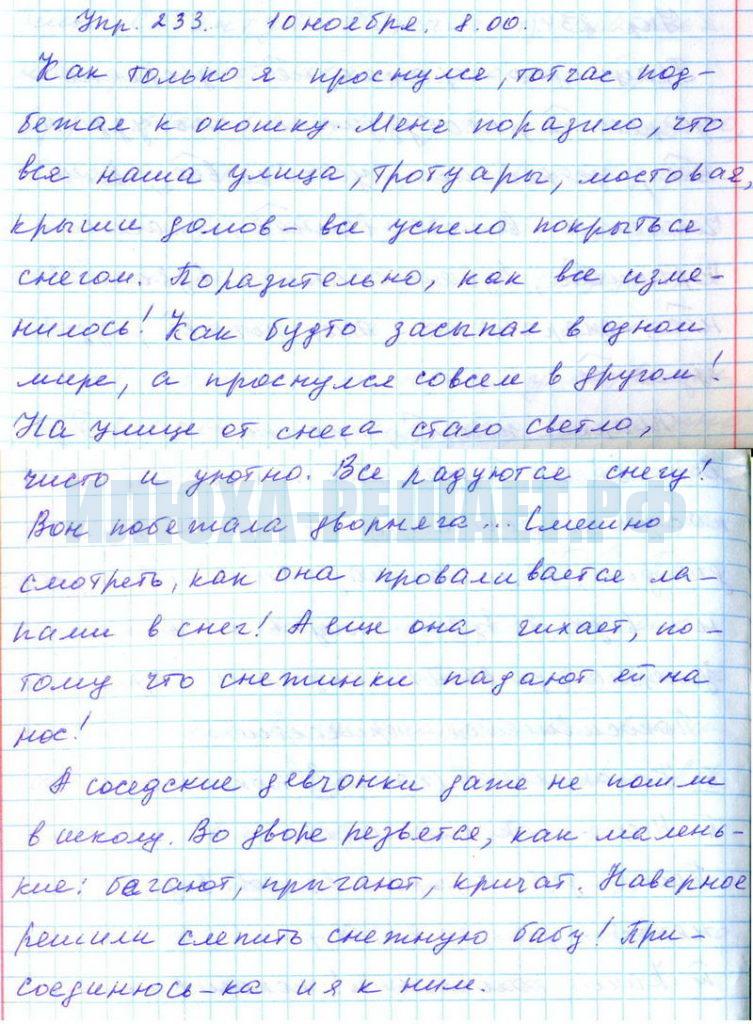 Упр. 233. 10 ноября. 8.00.
Как только я проснулся, тотчас под-
бежал к окошку. Меня поразило, что
вся наша улица, тротуары, мостовая,
крыши домов – все успело покрыться
снегом. Поразительно, как все изме-
нилось! Как будто засыпал в одном
мире, а проснулся совсем в другом!
На улице от снега стало светло,
чисто и уютно. Все радуются снегу!
ИЛЮХА-РЕШАЕТ.РФ
Вон побежала дворняга... Смешно
смотреть, как она проваливается ла-
пами в снег! А еще она чихает, по-
тому что снежинки падают ей на
нос!
А соседские девчонки даже не пошли
в школу. Во дворе резвятся, как малень-
кие: бегают, прыгают, кричат. Наверное
решили слепить снежную бабу! При-
соединюсь-ка и я к ним.